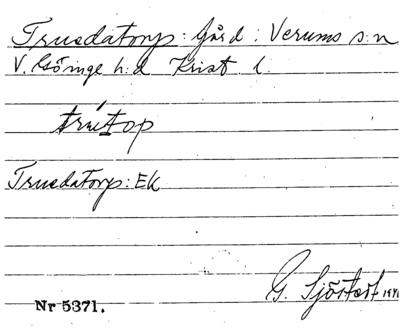 Truedatorp: Gård: Verums s:n
V. Göinge h:d Krist l.
trúetop
Truedatorp: EK
G. Sjöstedt
Nr 5371.